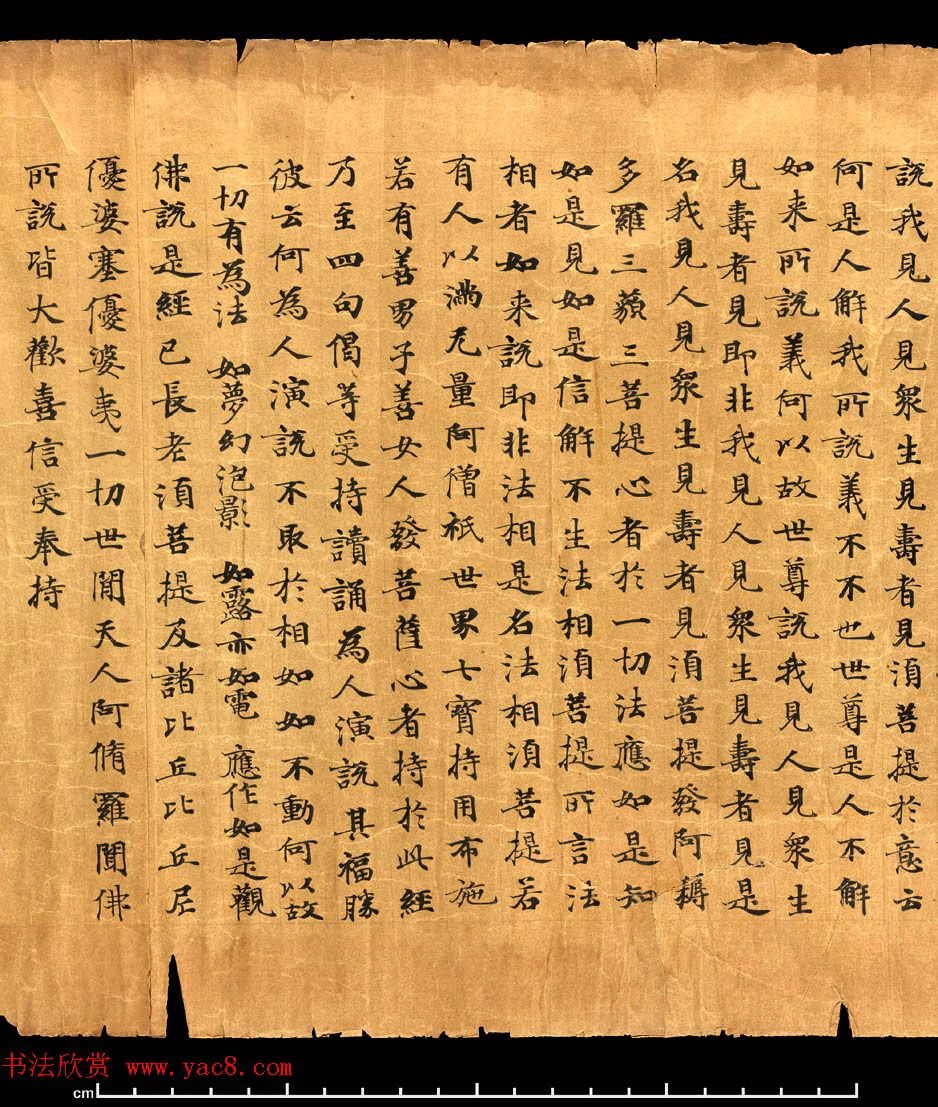 說我見人見衆生見壽者見湏菩提於意云
何是人解我所說義不不也世尊是人不解
如来所說義何以故世尊說我見人見衆生
見壽者見即非我見人見衆生見壽者見是
名我見人見衆生見壽者見湏菩提發阿耨
多羅三藐三菩提心者於一切法應如是知
如是見如是信解不生法相湏菩提所言法
相者如来說即非法相是名法相湏菩提若
有人以滿无量阿僧祇世界七寳持用布施
若有善男子善女人發菩薩心者持於此經
乃至四句偈等受持讀誦為人演說其福勝
彼云何為人演說不取於相如如不動何以故
一切有為法 如夢幻泡影 如露亦如電 應作如是觀
佛說是經已長老湏菩提及諸比丘比丘尼
優婆塞優婆夷一切世閒天人阿脩羅聞佛
所說皆大歡喜信受奉持
书法欣赏 www.yac8.com
cm